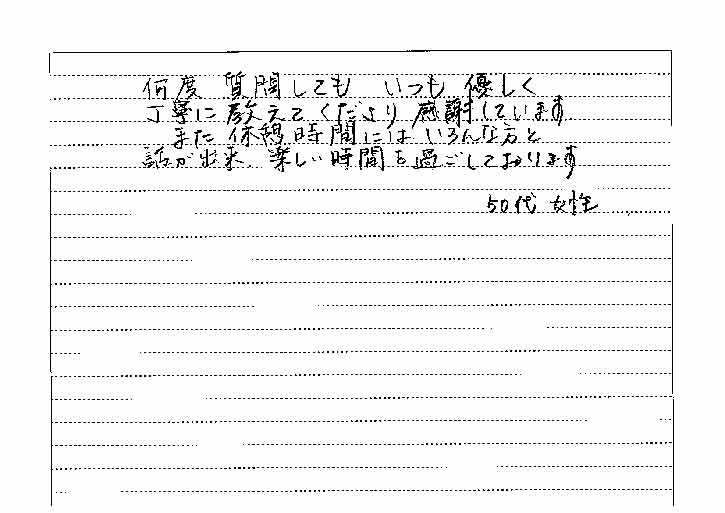 何度 質問しても いつも 優しく
丁寧に教えてくださり 感謝しています
また 休憩時間には いろんな方と
話が出来、楽しい時間を過ごしております
50代 女性